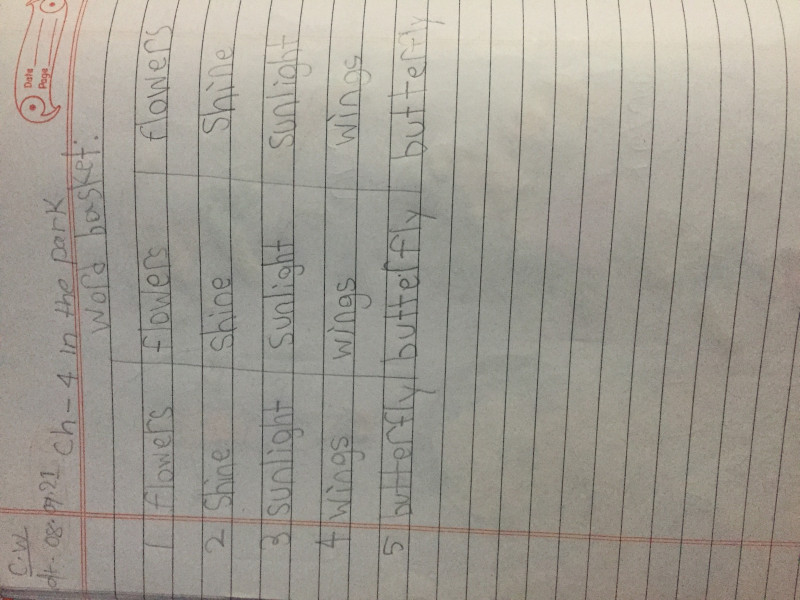 Date
Page
C.W
dt- 08.09.21 Ch-4 in the park
Word basket:
1 flowers flowers flowers
2 Shine Shine Shine
3 Sunlight Sunlight Sunlight
4 Wings Wings Wings
5 butterfly butterfly butterfly